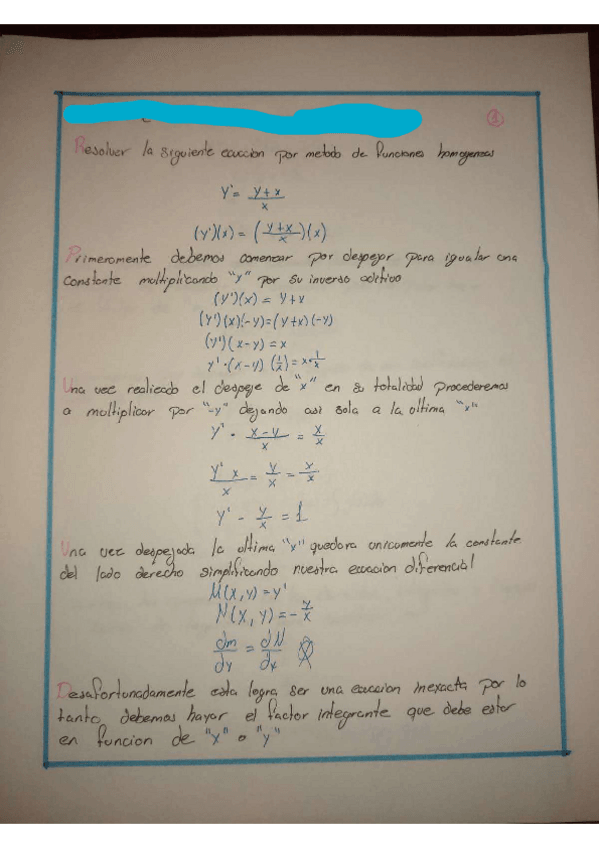 1
Resolver la siguiente ecuacion por metodo de funciones homogeneas
y' = y+x / x
(y')(x) = (y+x / x)(x)
Primeramente debemos comenzar por despejar para igualar una
constante multiplicando "y" por su inverso aditivo
(y')(x) = y+x
(y')(x)(-y)=(y+x)(-y)
(y')(x-y)=x
y'·(x-y)(1/x)=x·1/x
Una vez realizado el despeje de "x" en su totalidad procederemos
a multiplicar por "-y" dejando asi sola a la ultima "x"
y' · x-y / x = x/x
y' x / x = y/x = x/x
y' - y/x = 1
Una vez despejada la ultima "x" quedara unicamente la constante
del lado derecho simplificando nuestra ecuacion diferencial
M(x,y)=y'
N(x,y)=-y/x
dm/dy = dN/dx
Desafortunadamente esta logra ser una ecuacion inexacta por lo
tanto debemos hayar el factor integrante que debe estar
en funcion de "x" o "y"